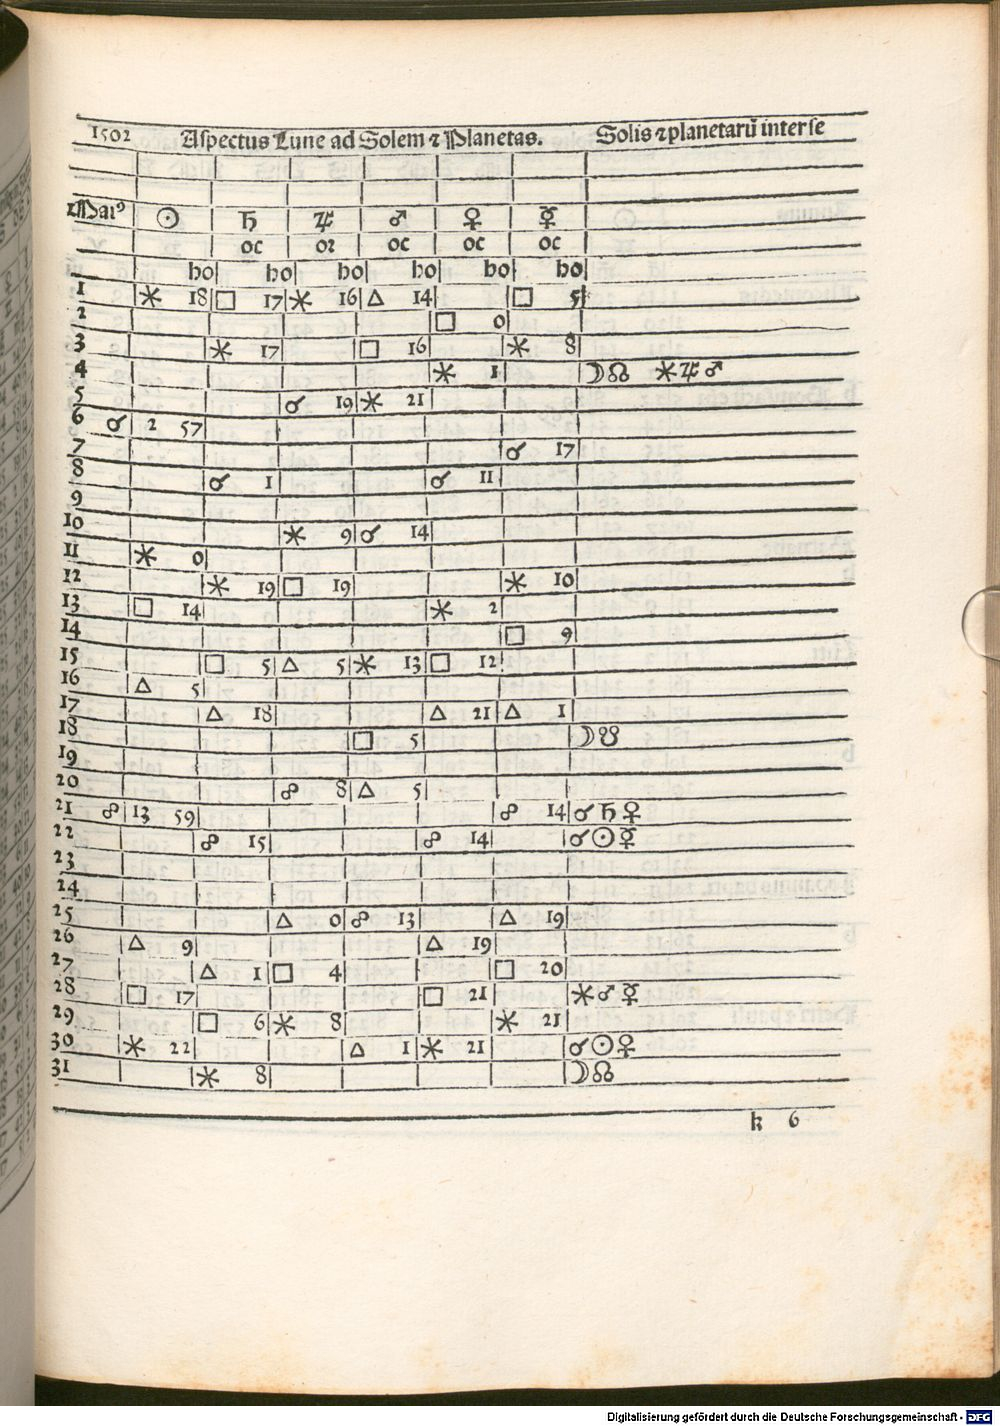 1502 Aspectus Lune ad Solem ⁊ Planetas. Solis ⁊ planetarū inter se
Maiꝰ ☉ ♄ ♃ ♂ ♀ ☿
oc or oc oc oc
ho ho ho ho ho ho
1 ⚹ 18 □ 17 ⚹ 16 △ 14 □ 5
2 □ 0
3 ⚹ 17 □ 16 ⚹ 8
4 ⚹ 1 ☽☊ ⚹♃♂
5 ☌ 19 ⚹ 21
6 ☌ 2 57
7 ☌ 17
8 ☌ 1 ☌ 11
9
10 ⚹ 9 ☌ 14
11 ⚹ 0
12 ⚹ 19 □ 19 ⚹ 10
13 □ 14 ⚹ 2
14 □ 9
15 □ 5 △ 5 ⚹ 13 □ 12
16 △ 5
17 △ 18 △ 21 △ 1
18 □ 5 ☽☋
19
20 ☍ 8 △ 5
21 ☍ 13 59 ☍ 14 ☌♄♀
22 ☍ 15 ☍ 14 ☌☉☿
23
24
25 △ 0 ☍ 13 △ 19
26 △ 9 △ 19
27 △ 1 □ 4 □ 20
28 □ 17 □ 21 ⚹♂☿
29 □ 6 ⚹ 8 ⚹ 21
30 ⚹ 22 △ 1 ⚹ 21 ☌☉♀
31 ⚹ 8 ☽☊
k 6
Digitalisierung gefördert durch die Deutsche Forschungsgemeinschaft - DFG